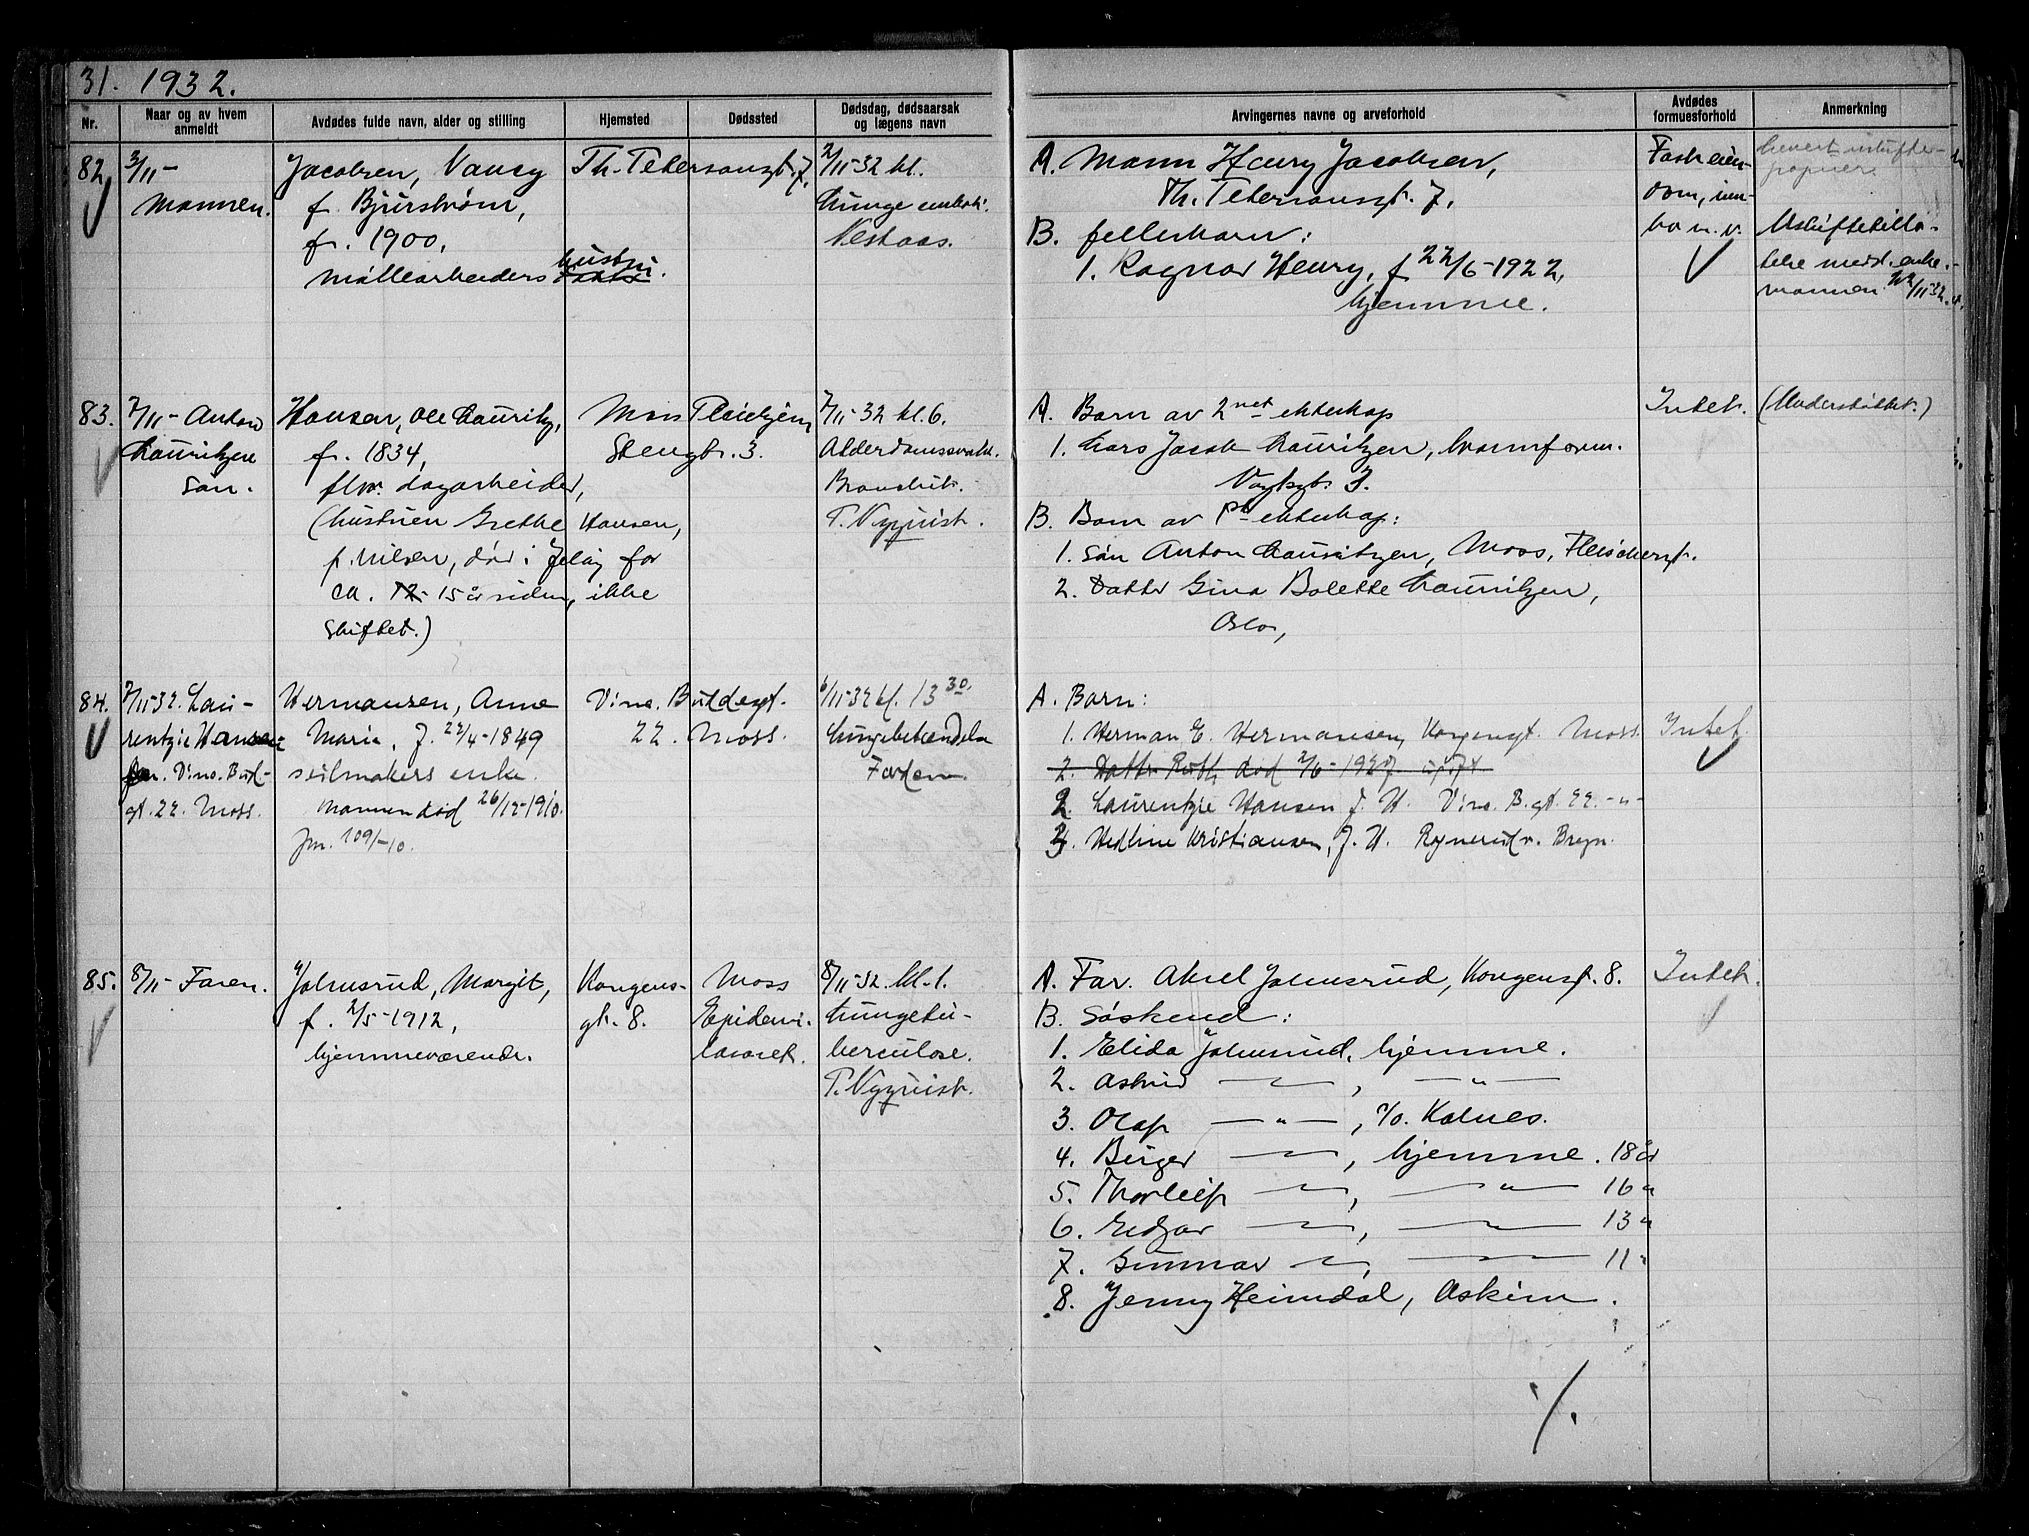 31. 1932.
Nr.
Naar og av hvem
anmeldt
Avdødes fulde navn, alder og stilling
Hjemsted
Dødssted
Dødsdag, dødsaarsak
og lægens navn
Arvingernes navne og arveforhold
Avdødes
formuesforhold
Anmerkning
82.
3/11-
Mannen.
Jacobsen, Vancy
f. Bjurstrøm,
fr. 1900,
møllearbeiders hustru.
Th. Petersonsgt. 7.
2/11-32 kl.
Lungeemboli.
Nestaas.
A. Mann Henry Jacobsen,
Th. Petersonsgt. 7.
B. fellesbarn:
1. Ragnar Henry, f 22/6-1922,
hjemme.
Fast eien-
dom, inn-
bo m.v.
Uskiftetilla-
telse medd. enke-
mannen 22/11 32.
83.
7/11- Anton
Lauritzen
Søn.
Hansen, Ole Lauritz,
f. 1834,
fhv. dagarbeider,
(hustruen Grethe Hansen,
f. Nilsen, død i Jeløy for
ca. 12- 15 år siden, ikke
skiftet.)
Moss Pleiehjem
Stengt. 3.
7/11-32 kl. 6.
Alderdomssvakh.
Bronchit.
T. Nyquist.
A. Barn av 2net ekteskap
1. Lars Jacob Lauritzen, barnforem.
Vogtsgt. 3.
B. Barn av 1st ekteskap:
1. Søn Anton Lauritzen, Moss, Fleischersgt.
2. Datter Gina Bolette Lauritzen,
Oslo,
Intet.
(Understøttet.)
84.
7/11-32. Lau-
rentzie Hansen
Vinc. Bud-
gt. 22. Moss.
Hermansen, Anne
Marie, f. 22/4-1849
seilmakers enke.
Mannen død 26/12-1910.
Jnr. 109/-10.
Vinc. Buddesgt.
22. Moss.
6/11-32 kl. 13 30.
Lungebetændelse
A. Barn:
1. Herman E. Hermansen, Kongensgt. Moss.
2. Datter Ruth død 2/6-1927 ugift
2. Laurentzie Hansen f. H. Vinc. B.gt. 22. -"-
3. Hedline Kristiansen, f. H. Bryn.
Intet
85.
8/11- Faren.
Johnsrud, Margit,
f. 2/5-1912,
hjemmeværende.
Kongens-
gt. 8.
Moss
Epidemi-
lasaret.
8/11-32. kl. 1.
Lungetu-
berculose.
T. Nyquist.
A. Far. Aksel Johnsrud, Kongensgt. 8.
B. Søskend:
1. Elida Johnsrud, hjemme.
2. Astrid — " — , — " —
3. Olaf — " — , Kalnes.
4. Birger — " — , hjemme. 18 år
5. Thorleif — " — , — " — 16 "
6. Edgar — " — , — " — 13 "
7. Gunnar — " — , — " — 11 "
8. Jenny Heimdal, Askim.
Intet.